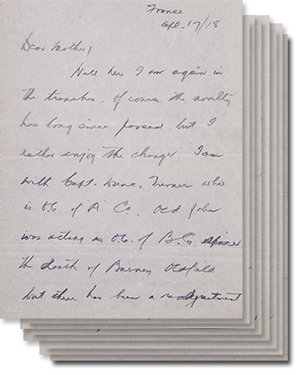 France
Apl. 17/18
Dear Mother,
Well here I am again in
the trenches. Of course the novelty
has long since passed but I
rather enjoy the change. I am
with Capt. Turner who
is O.C. of A Co. Old John
was acting as O.C. of B. Co
the death of Barney Oldfield
but there has been a readjustment